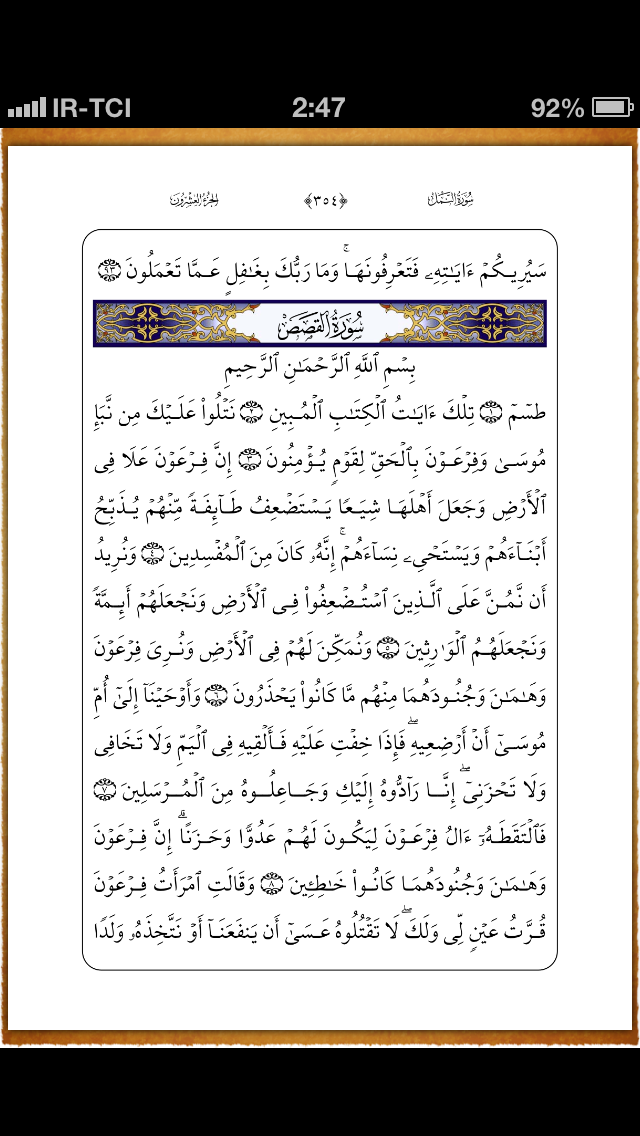 IR-TCI 2:47 92%
سُورَةُ النَّمْلِ ﴿٣٥٤﴾ الجُزءُ العِشْرُونَ
سَيُرِيكُمْ ءَايَـٰتِهِۦ فَتَعْرِفُونَهَا ۚ وَمَا رَبُّكَ بِغَـٰفِلٍ عَمَّا تَعْمَلُونَ ﴿٩٣﴾
سُورَةُ القَصَصِ
بِسْمِ ٱللَّهِ ٱلرَّحْمَـٰنِ ٱلرَّحِيمِ
طسٓمٓ ﴿١﴾ تِلْكَ ءَايَـٰتُ ٱلْكِتَـٰبِ ٱلْمُبِينِ ﴿٢﴾ نَتْلُوا۟ عَلَيْكَ مِن نَّبَإِ
مُوسَىٰ وَفِرْعَوْنَ بِٱلْحَقِّ لِقَوْمٍ يُؤْمِنُونَ ﴿٣﴾ إِنَّ فِرْعَوْنَ عَلَا فِى
ٱلْأَرْضِ وَجَعَلَ أَهْلَهَا شِيَعًا يَسْتَضْعِفُ طَآئِفَةً مِّنْهُمْ يُذَبِّحُ
أَبْنَآءَهُمْ وَيَسْتَحْىِۦ نِسَآءَهُمْ ۚ إِنَّهُۥ كَانَ مِنَ ٱلْمُفْسِدِينَ ﴿٤﴾ وَنُرِيدُ
أَن نَّمُنَّ عَلَى ٱلَّذِينَ ٱسْتُضْعِفُوا۟ فِى ٱلْأَرْضِ وَنَجْعَلَهُمْ أَئِمَّةً
وَنَجْعَلَهُمُ ٱلْوَٰرِثِينَ ﴿٥﴾ وَنُمَكِّنَ لَهُمْ فِى ٱلْأَرْضِ وَنُرِىَ فِرْعَوْنَ
وَهَـٰمَـٰنَ وَجُنُودَهُمَا مِنْهُم مَّا كَانُوا۟ يَحْذَرُونَ ﴿٦﴾ وَأَوْحَيْنَآ إِلَىٰٓ أُمِّ
مُوسَىٰٓ أَنْ أَرْضِعِيهِ ۖ فَإِذَا خِفْتِ عَلَيْهِ فَأَلْقِيهِ فِى ٱلْيَمِّ وَلَا تَخَافِى
وَلَا تَحْزَنِىٓ ۖ إِنَّا رَآدُّوهُ إِلَيْكِ وَجَاعِلُوهُ مِنَ ٱلْمُرْسَلِينَ ﴿٧﴾
فَٱلْتَقَطَهُۥٓ ءَالُ فِرْعَوْنَ لِيَكُونَ لَهُمْ عَدُوًّا وَحَزَنًا ۗ إِنَّ فِرْعَوْنَ
وَهَـٰمَـٰنَ وَجُنُودَهُمَا كَانُوا۟ خَـٰطِـِٔينَ ﴿٨﴾ وَقَالَتِ ٱمْرَأَتُ فِرْعَوْنَ
قُرَّتُ عَيْنٍ لِّى وَلَكَ ۖ لَا تَقْتُلُوهُ عَسَىٰٓ أَن يَنفَعَنَآ أَوْ نَتَّخِذَهُۥ وَلَدًا